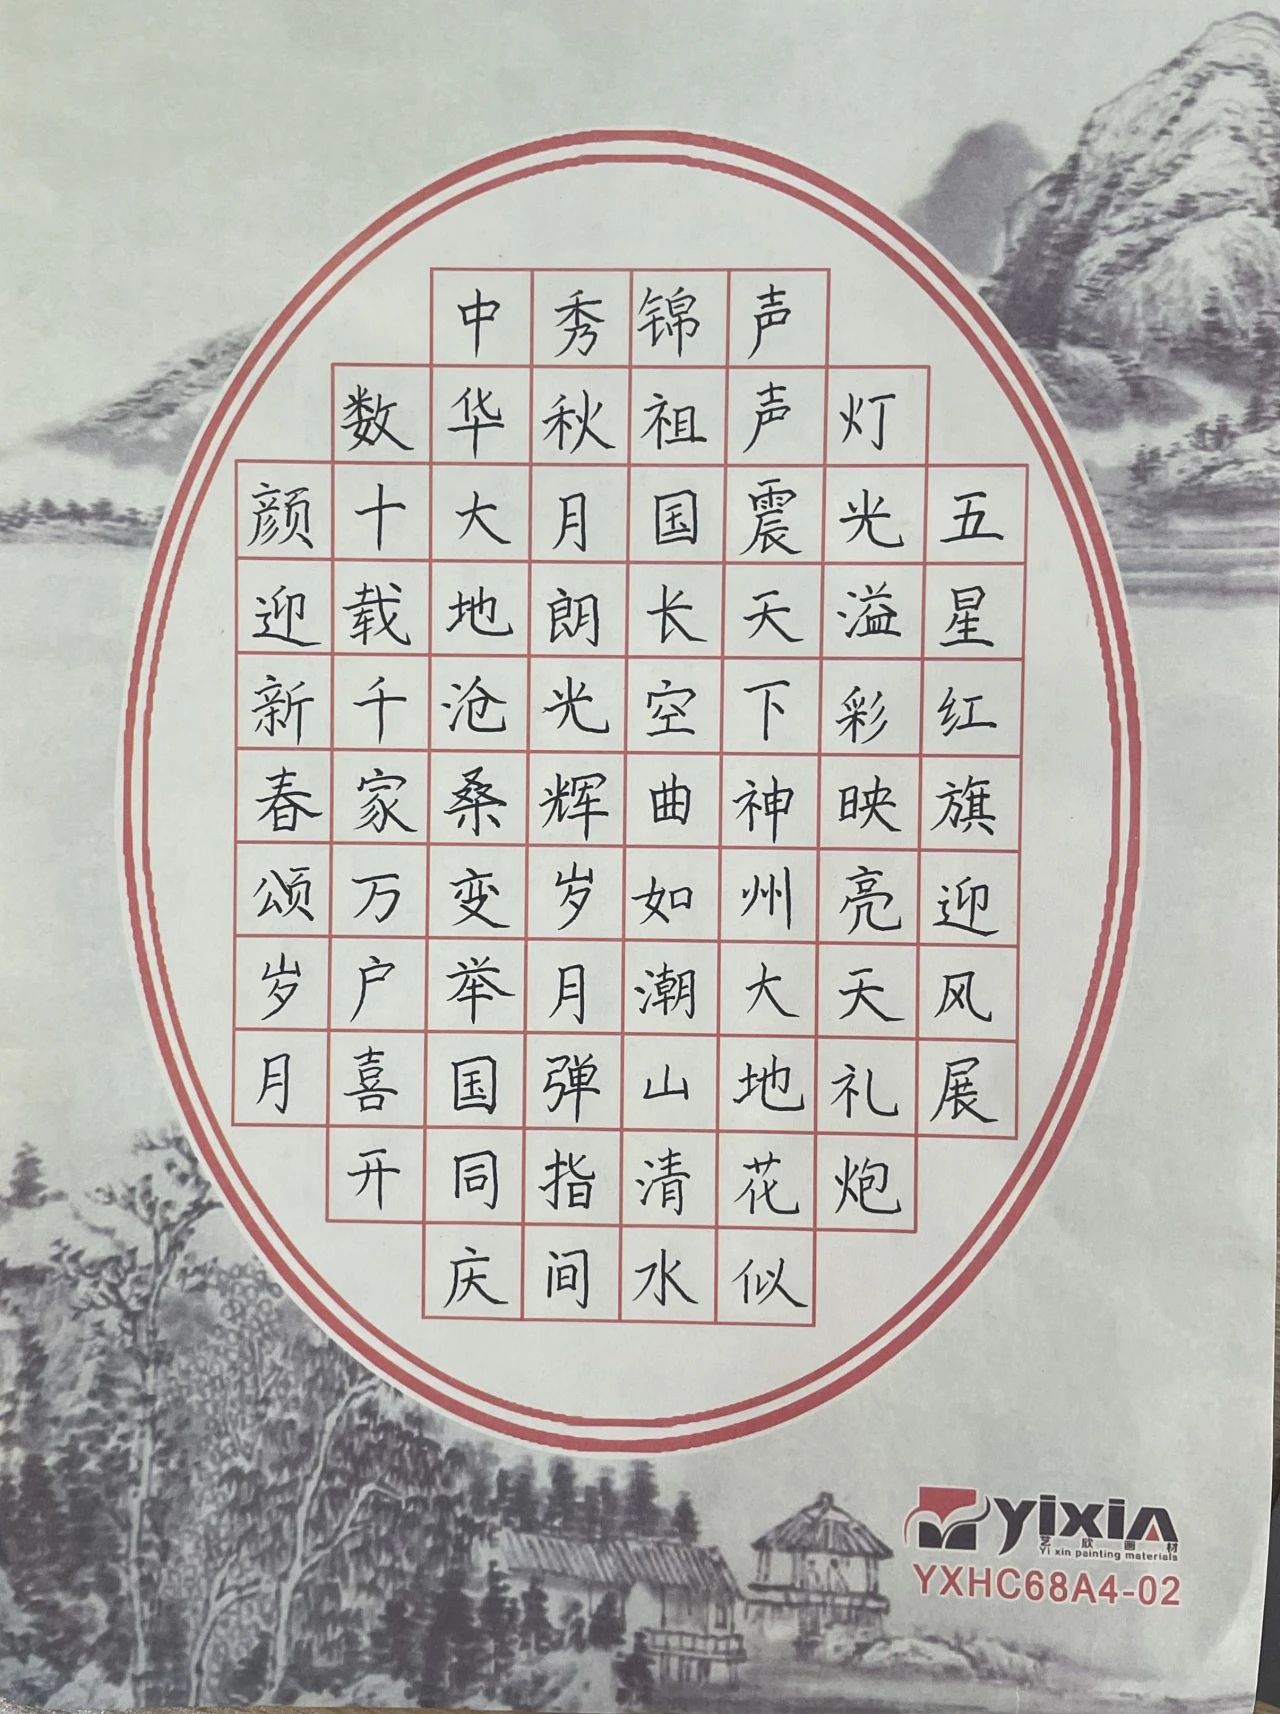 五星红旗迎风展
灯光溢彩映亮天礼炮
声声震天下神州大地花似
锦祖国长空曲如潮山清水
秀秋月朗光辉岁月弹指间
中华大地沧桑变举国同庆
数十载千家万户喜开
颜迎新春颂岁月
yixin
艺欣画材
Yi xin painting materials
YXHC68A4-02